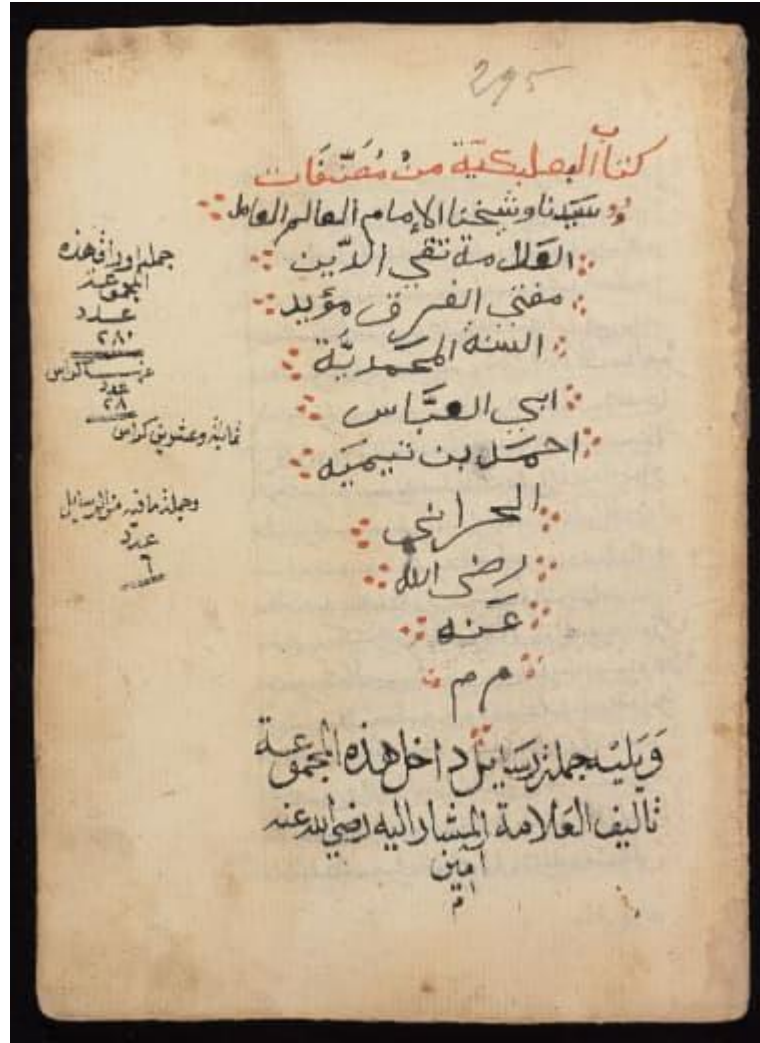 295
كتاب البعلبكية من مصنفات
سيدنا وشيخنا الإمام العالم العامل
العلامة تقي الدين
مفتي الفرق مؤيد
السنة المحمدية
ابي العباس
احمد بن تيمية
الحراني
رضى الله
عنه
م م
ويليه جملة رسايل داخل هذه المجموعة
تاليف العلامة المشار اليه رضي الله عنه
آمين
م
جملة اوراق هذه
المجموعة
عدد
٢٨١
عنها كراس
عدد
٢٨
ثمانية وعشرين كراس
وجملة ما فيه من الرسايل
عدد
٦